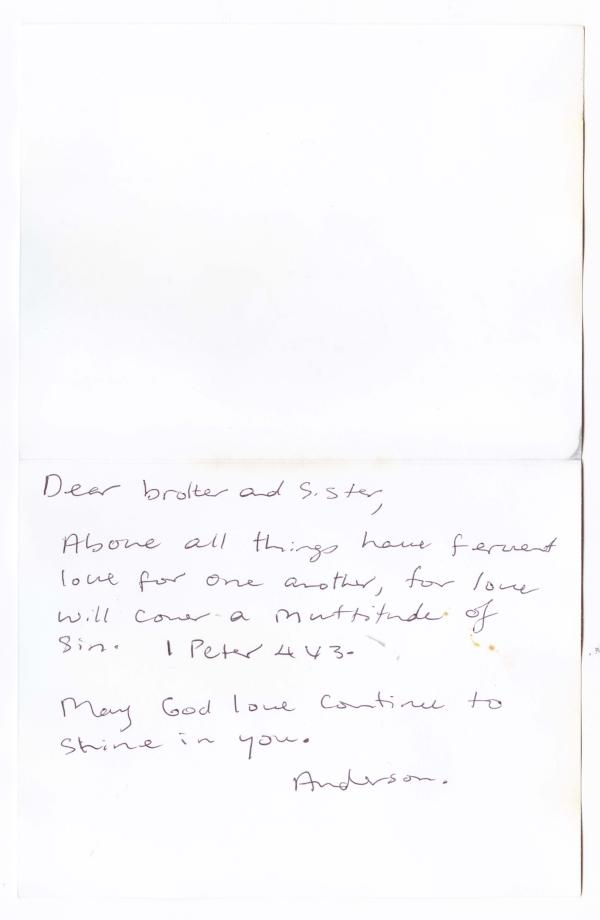 Dear brother and Sister,
Above all things have fervent
love for one another, for love
will cover a multitude of
Sin. 1 Peter 4 V 3.
May God love continue to
shine in you.
Anderson.